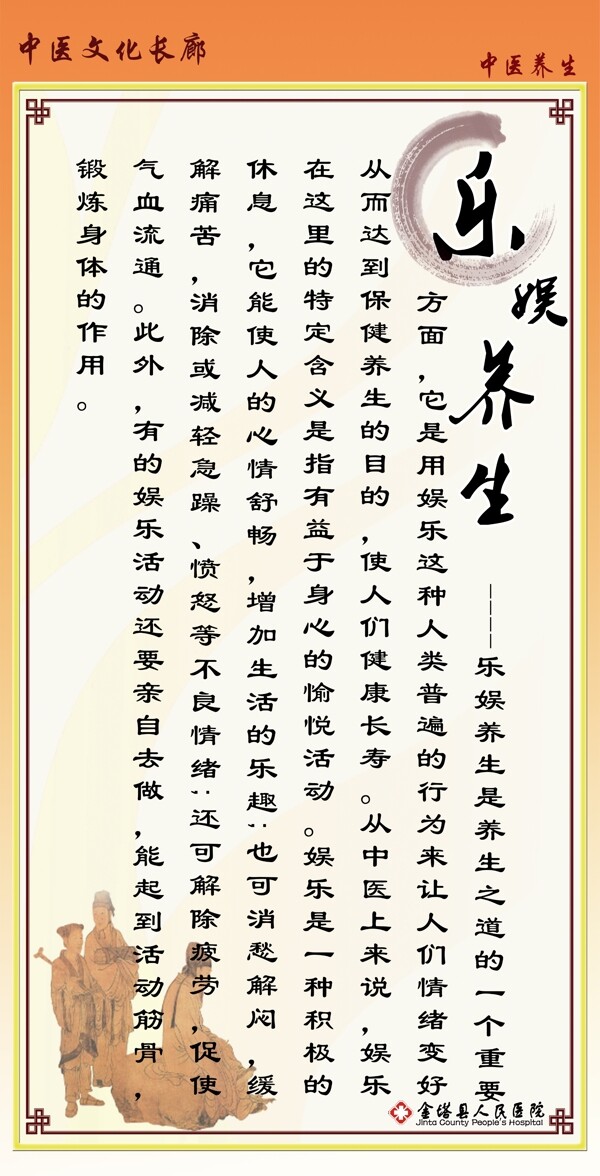 中医文化长廊
中医养生
乐娱养生
————乐娱养生是养生之道的一个重要
方面，它是用娱乐这种人类普遍的行为来让人们情绪变好
从而达到保健养生的目的，使人们健康长寿。从中医上来说，娱乐
在这里的特定含义是指有益于身心的愉悦活动。娱乐是一种积极的
休息，它能使人的心情舒畅，增加生活的乐趣；也可消愁解闷，缓
解痛苦，消除或减轻急躁、愤怒等不良情绪；还可解除疲劳，促使
气血流通。此外，有的娱乐活动还要亲自去做，能起到活动筋骨，
锻炼身体的作用。
金塔县人民医院
Jinta County People's Hospital